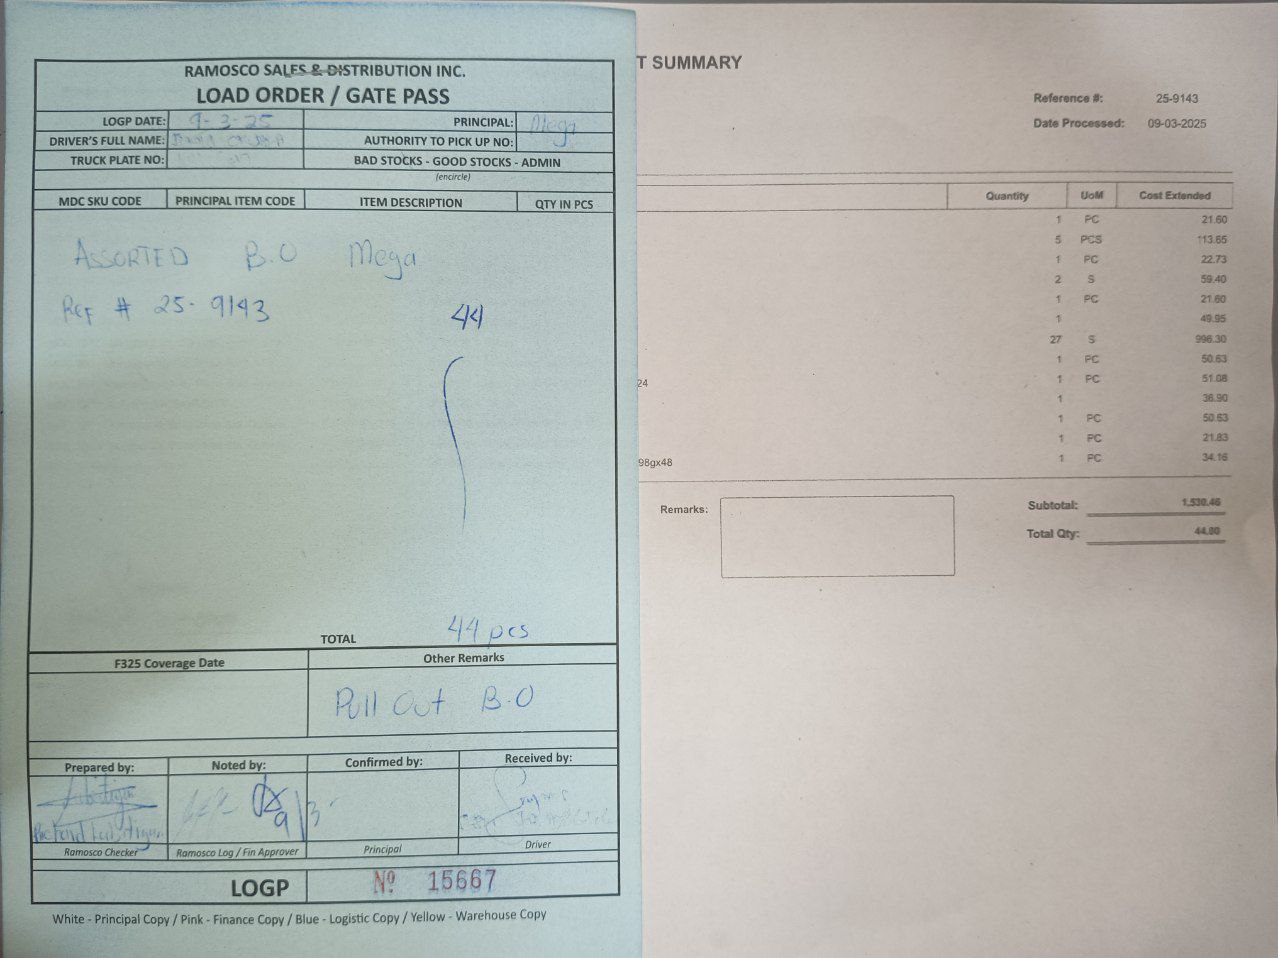 RAMOSCO SALES & DISTRIBUTION INC.
LOAD ORDER / GATE PASS
LOGP DATE: 9-3-25 PRINCIPAL: Mega
DRIVER'S FULL NAME: AUTHORITY TO PICK UP NO:
TRUCK PLATE NO: BAD STOCKS - GOOD STOCKS - ADMIN
(encircle)
MDC SKU CODE PRINCIPAL ITEM CODE ITEM DESCRIPTION QTY IN PCS
ASSORTED B.O Mega
Ref # 25-9143 44
TOTAL 44 pcs
F325 Coverage Date Other Remarks
Pull Out B.O
Prepared by: Noted by: Confirmed by: Received by:
9/3
Ramosco Checker Ramosco Log / Fin Approver Principal Driver
LOGP Nº 15667
White - Principal Copy / Pink - Finance Copy / Blue - Logistic Copy / Yellow - Warehouse Copy
T SUMMARY
Reference #: 25-9143
Date Processed: 09-03-2025
Quantity UoM Cost Extended
1 PC 21.60
5 PCS 113.65
1 PC 22.73
2 S 59.40
1 PC 21.60
1 49.95
27 S 996.30
1 PC 50.63
24 1 PC 51.08
1 36.90
1 PC 50.63
1 PC 21.83
98gx48 1 PC 34.16
Remarks: Subtotal: 1,530.46
Total Qty: 44.00